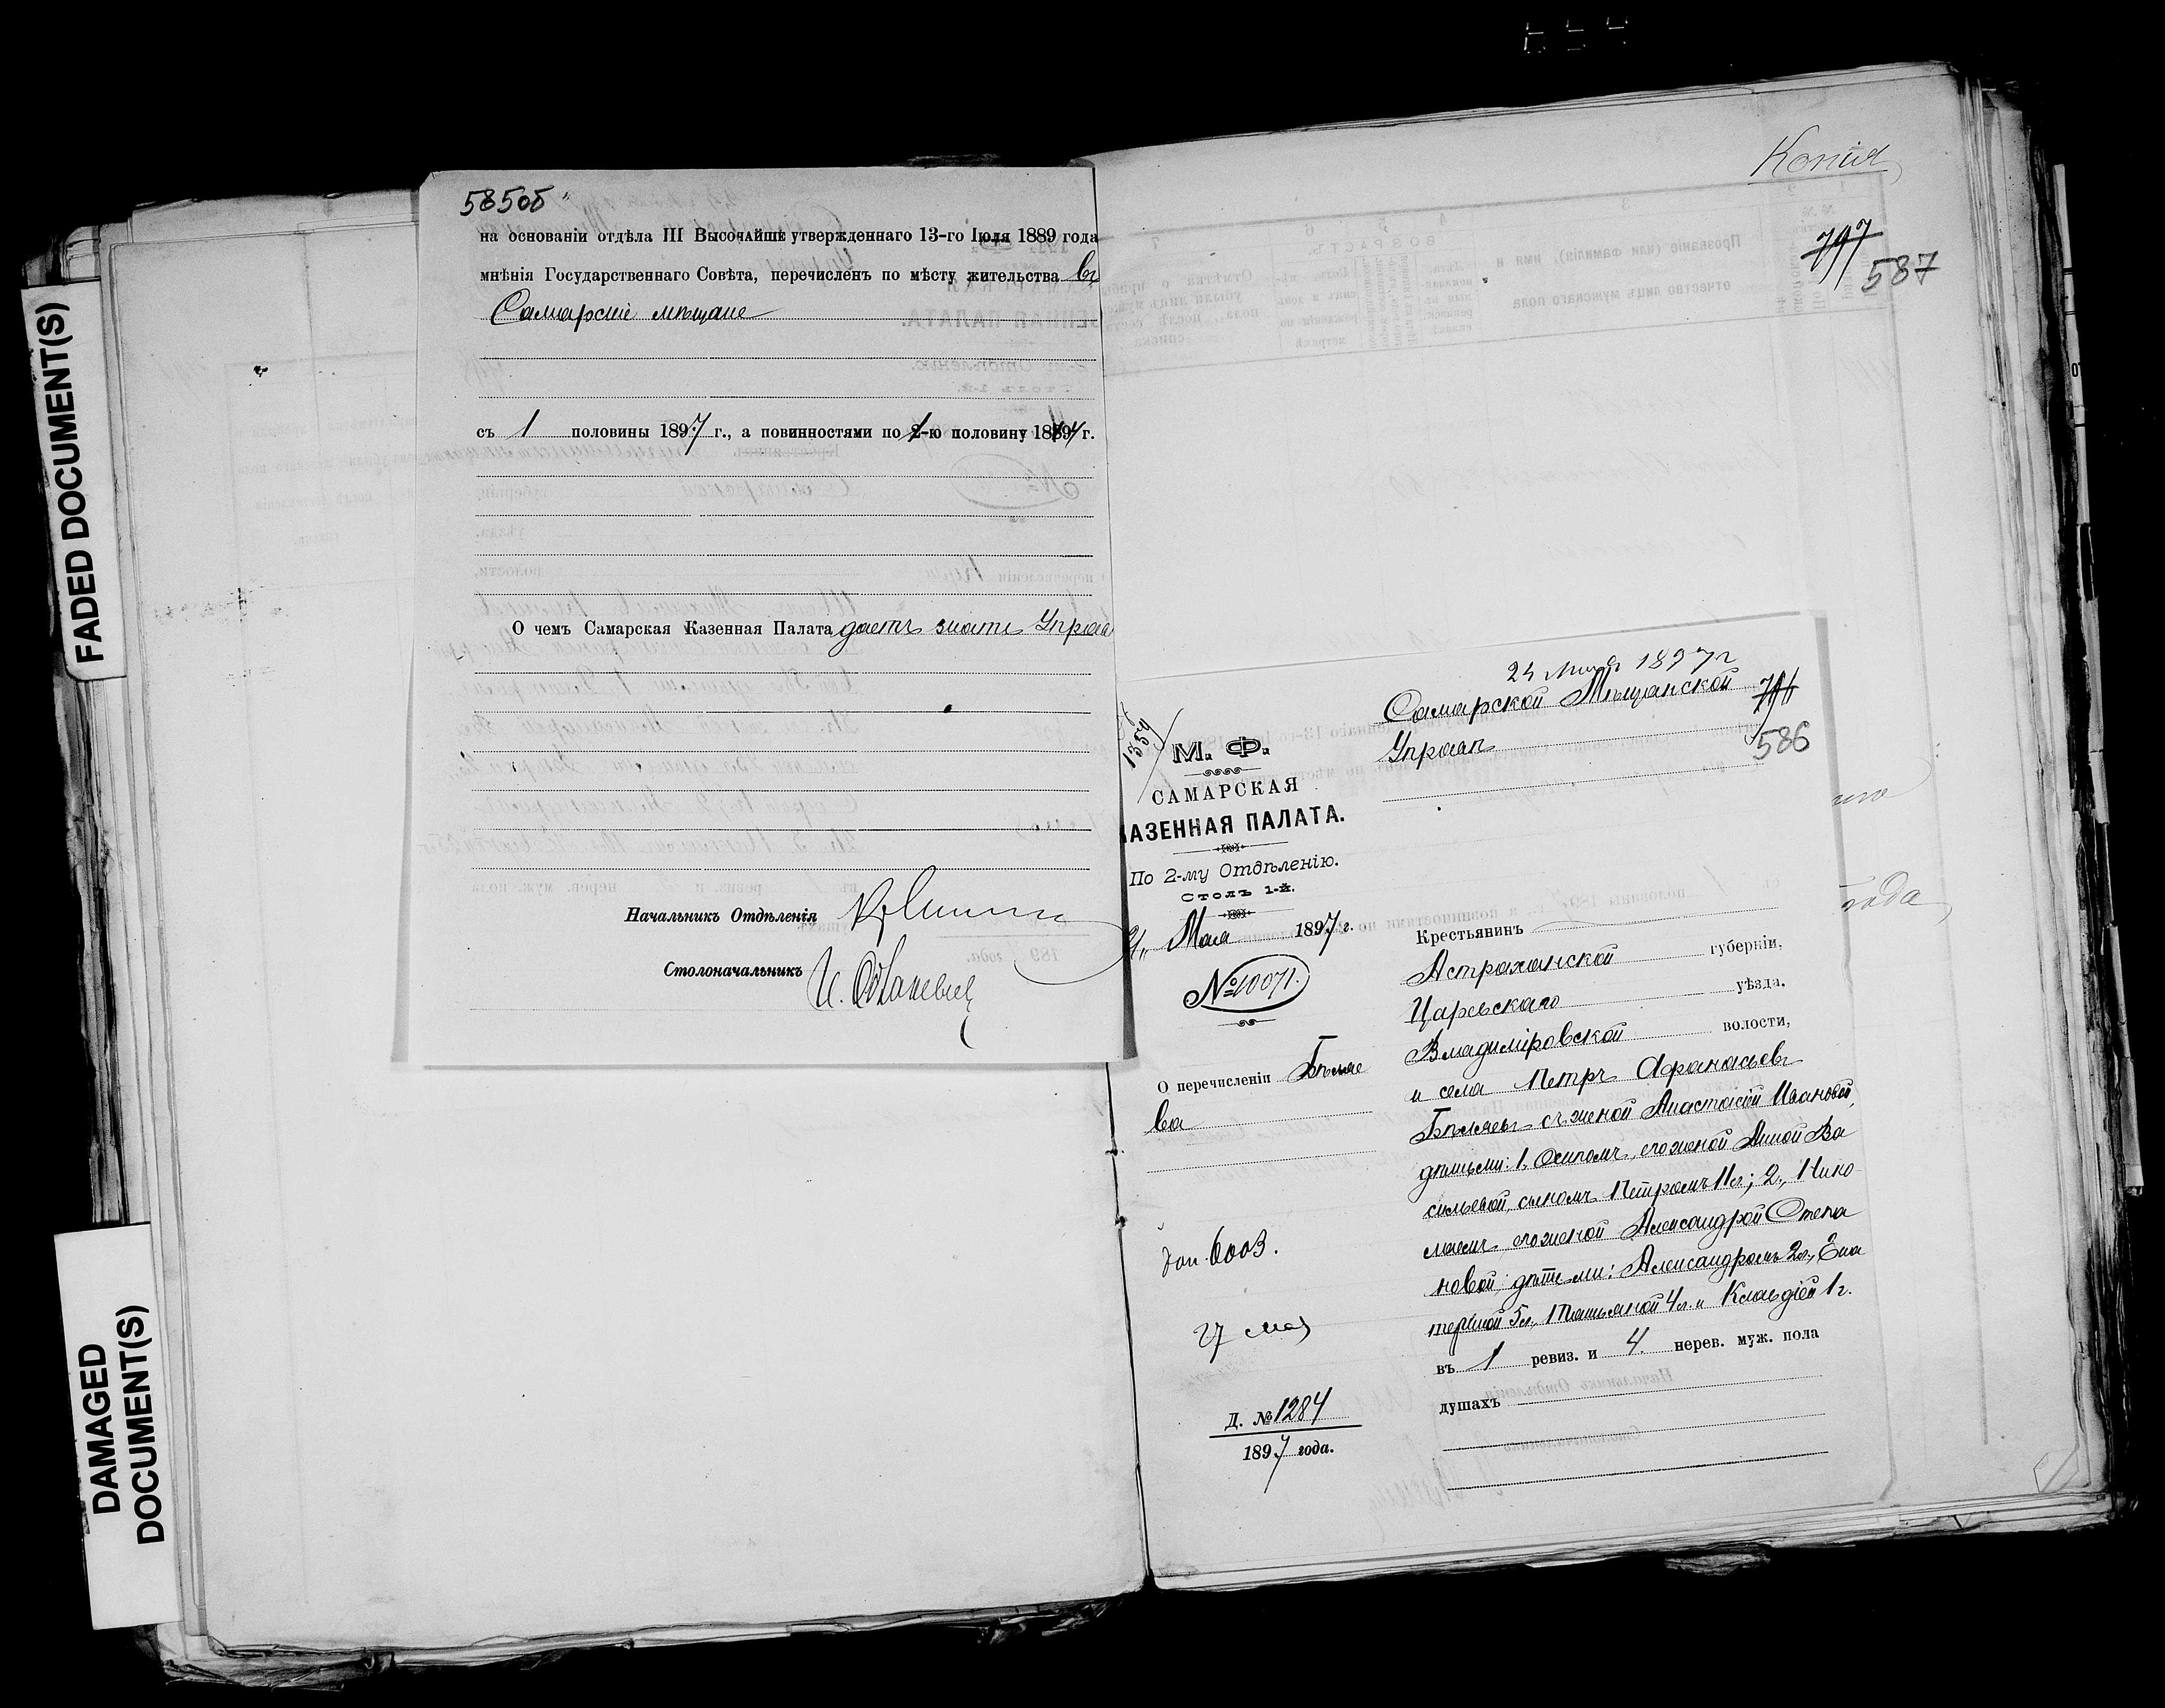 FADED DOCUMENT(S)
DAMAGED
DOCUMENT(S)
585об
на основаніи отдѣла III Высочайше утвержденнаго 13-го Іюля 1889 года
мнѣнія Государственнаго Совѣта, перечисленъ по мѣсту жительства въ
Самарскіе мѣщане
съ 1 половины 1897 г., а повинностями по 1-ю половину 1897 г.
О чемъ Самарская Казенная Палата даетъ знать Управ
Начальникъ Отдѣленія
Столоначальникъ
Копія
797
587
24 Мая 1897 г
Самарской Мѣщанской
Управѣ
586
1354
М. Ф.
САМАРСКАЯ
КАЗЕННАЯ ПАЛАТА.
По 2-му Отдѣленію.
Столъ 1-й.
Мая 1897 г.
№ 10071.
О перечисленіи Бѣляе
ва
6003.
27 мая
Д. № 1284
1897 года.
Крестьянинъ
Астраханской губерніи,
Царевскаго уѣзда,
Владиміровской волости,
и села Петръ Афанасьевъ
Бѣляевъ съ женой Анастасіей Ивановой,
дѣтьми: 1, Осипомъ, его женой Анной Ва
сильевой, сыномъ Петромъ 11 л.; 2, Нико
лаемъ, его женой Александрой Степа
новой, дѣтьми: Александромъ 2 л., Ека
териной 5 л., Татьяной 4 л. и Клавдіей 1 г.
въ 1 ревиз. и 4 нерев. муж. пола
душахъ
года